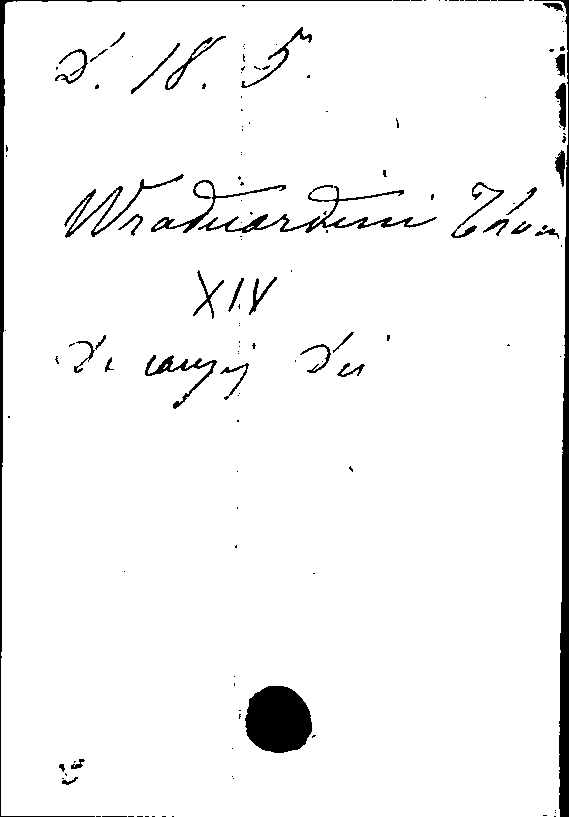 D. 18. 5.
Wraduardini Thom
XIV
De causij Dei